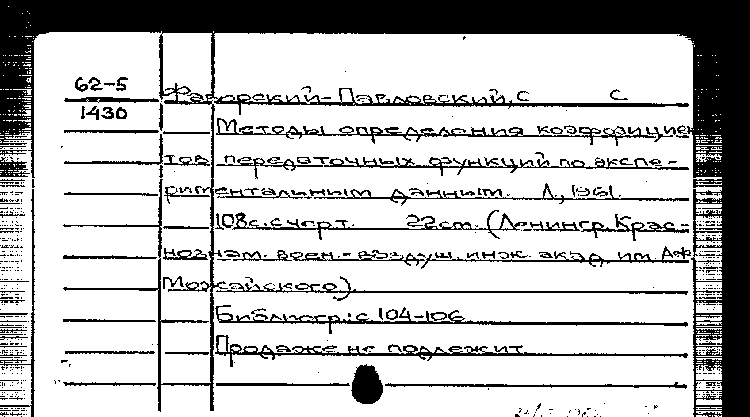 62-5
1430
Фаворский-Павловский, С С.
Методы определения коэффициен
тов передаточных функций по экспе-
риментальным данным. Л., 1961.
108 с. с черт. 22 см. (Ленингр. Крас-
нознам. воен.-воздуш. инж. акад. им. А.Ф.
Можайского).
Библиогр.: с 104-106
Продаже не подлежит